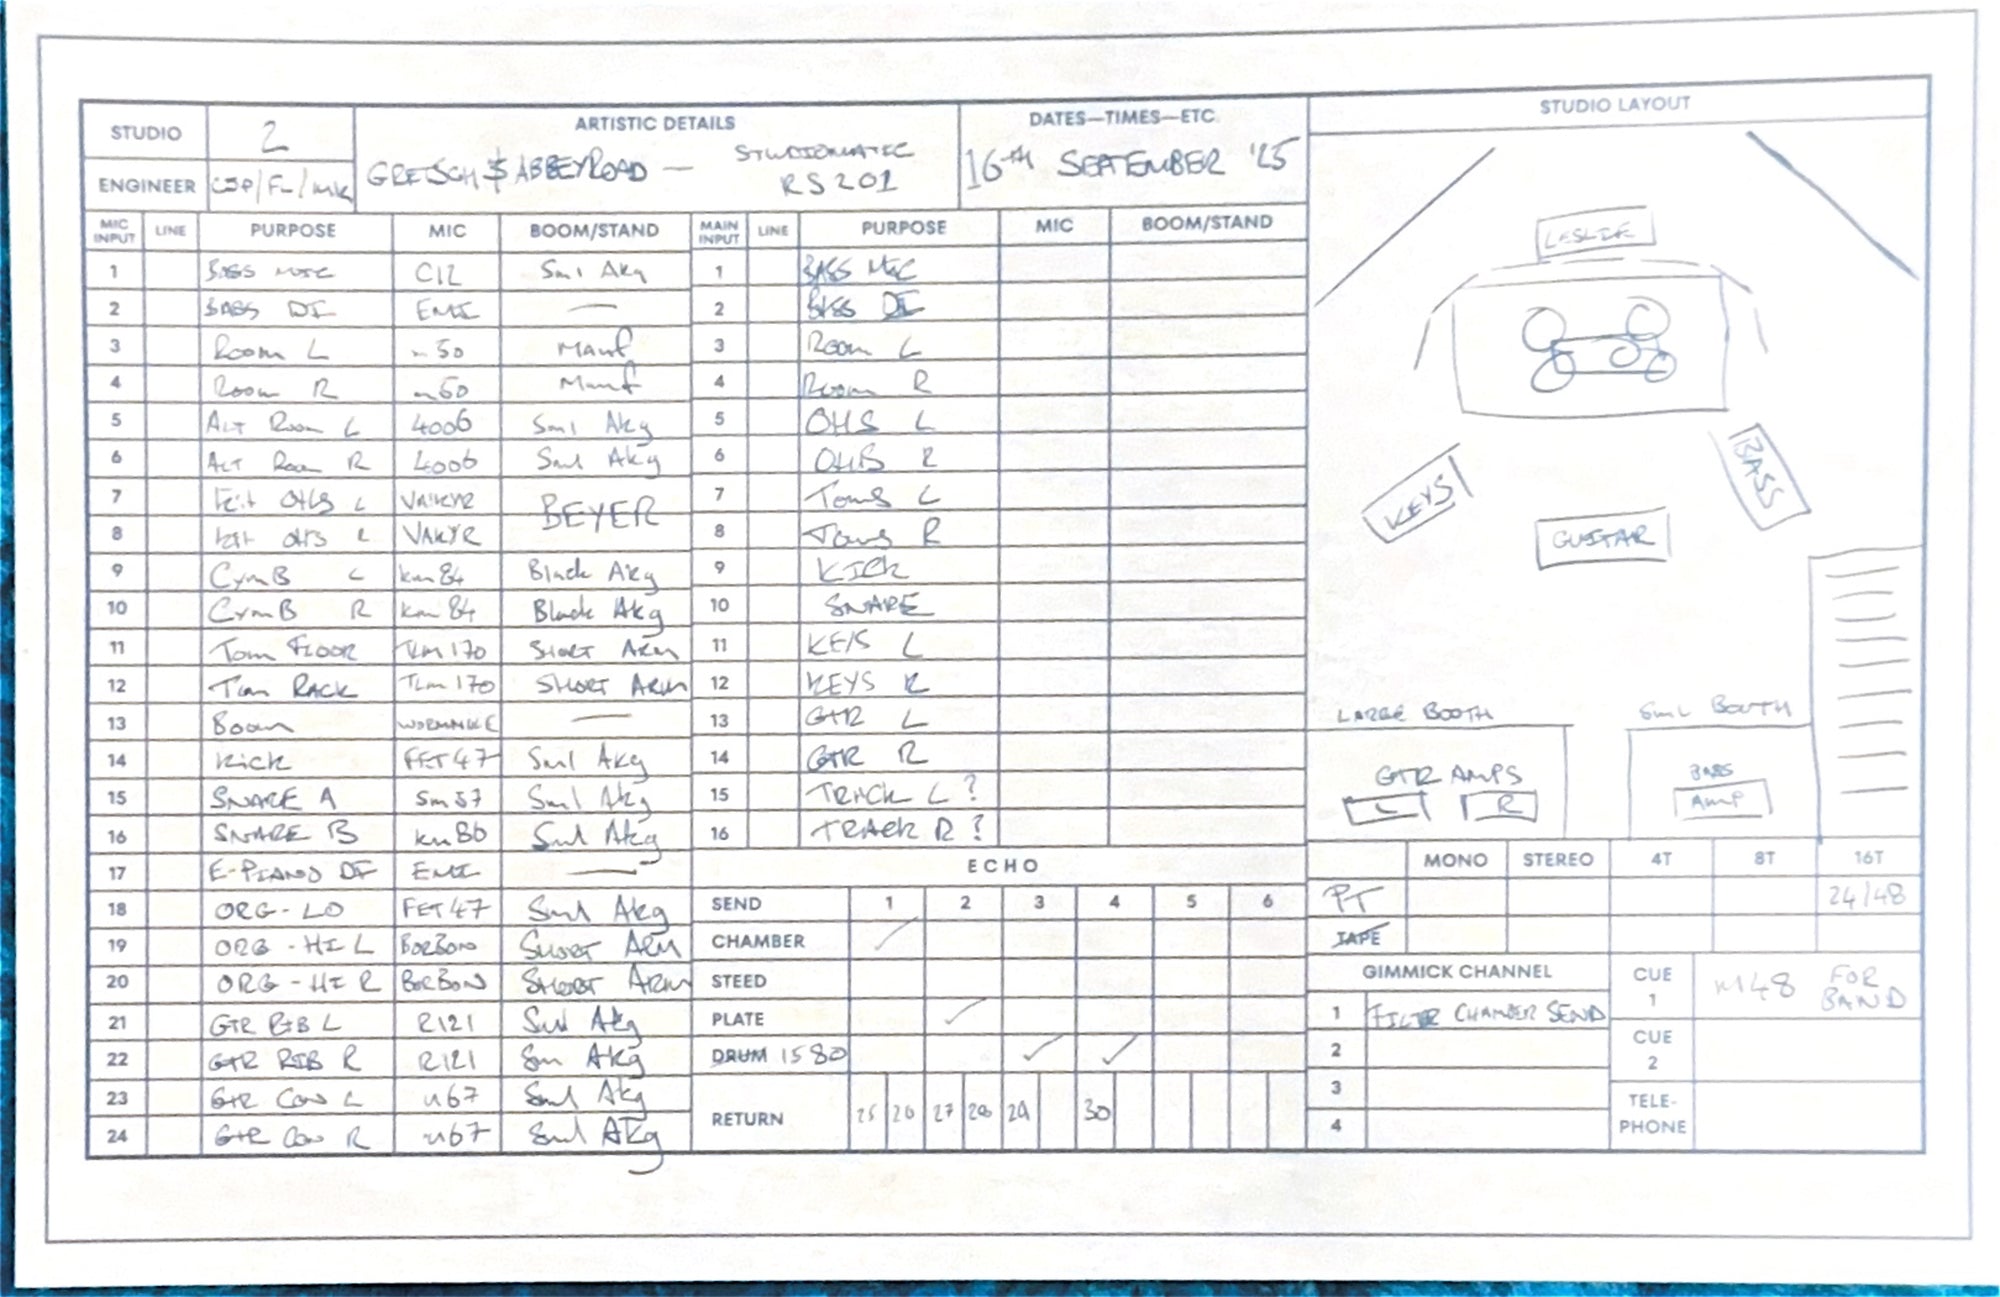 STUDIO 2 ARTISTIC DETAILS DATES—TIMES—ETC. STUDIO LAYOUT
ENGINEER GRETSCH $ ABBEY ROAD — STUDIOMATIC
RS201
16TH SEPTEMBER '25
MIC INPUT LINE PURPOSE MIC BOOM/STAND MAIN INPUT LINE PURPOSE MIC BOOM/STAND
1 BASS MIC C12 Sml Akg 1 BASS MIC
2 BASS DI EMI — 2 BASS DI
3 Room L m50 Manf 3 Room L
4 Room R m50 Manf 4 Room R
5 ALT Room L 4006 Sml Akg 5 OHS L
6 ALT Room R 4006 Sml Akg 6 OHS R
7 Kit OHS L VALKYR BEYER 7 Toms L
8 Kit OHS R VALKYR 8 Toms R
9 CYMB L km84 Black Akg 9 KICK
10 CYMB R km84 Black Akg 10 SNARE
11 Tom FLOOR TLM170 SHORT ARM 11 KEYS L
12 Tom RACK TLM170 SHORT ARM 12 KEYS R
13 Boom — 13 GTR L
14 Kick FET47 Sml Akg 14 GTR R
15 SNARE A Sm57 Sml Akg 15 TRACK L ?
16 SNARE B km86 Sml Akg 16 TRACK R ?
17 E-PIANO DI EMI —
18 ORG-LO FET47 Sml Akg
19 ORG-HI L BORBON SHORT ARM
20 ORG-HI R BORBON SHORT ARM
21 GTR RIB L R121 Sml Akg
22 GTR RIB R R121 Sm Akg
23 GTR CON L u67 Sml Akg
24 GTR CON R u67 Sml Akg
ECHO
SEND 1 2 3 4 5 6
CHAMBER ✓
STEED
PLATE ✓
DRUM 1580 ✓ ✓
RETURN 25 26 27 28 29 30
LESLIE
KEYS
BASS
GUITAR
LARGE BOOTH
SML BOOTH
GTR AMPS
L R
BASS
AMP
MONO STEREO 4T 8T 16T
PT 24/48
TAPE
GIMMICK CHANNEL
1 FILTER CHAMBER SEND
2
3
4
CUE 1 M48 FOR BAND
CUE 2
TELE-
PHONE